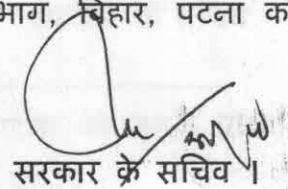 भाग, बिहार, पटना क
सरकार के सचिव